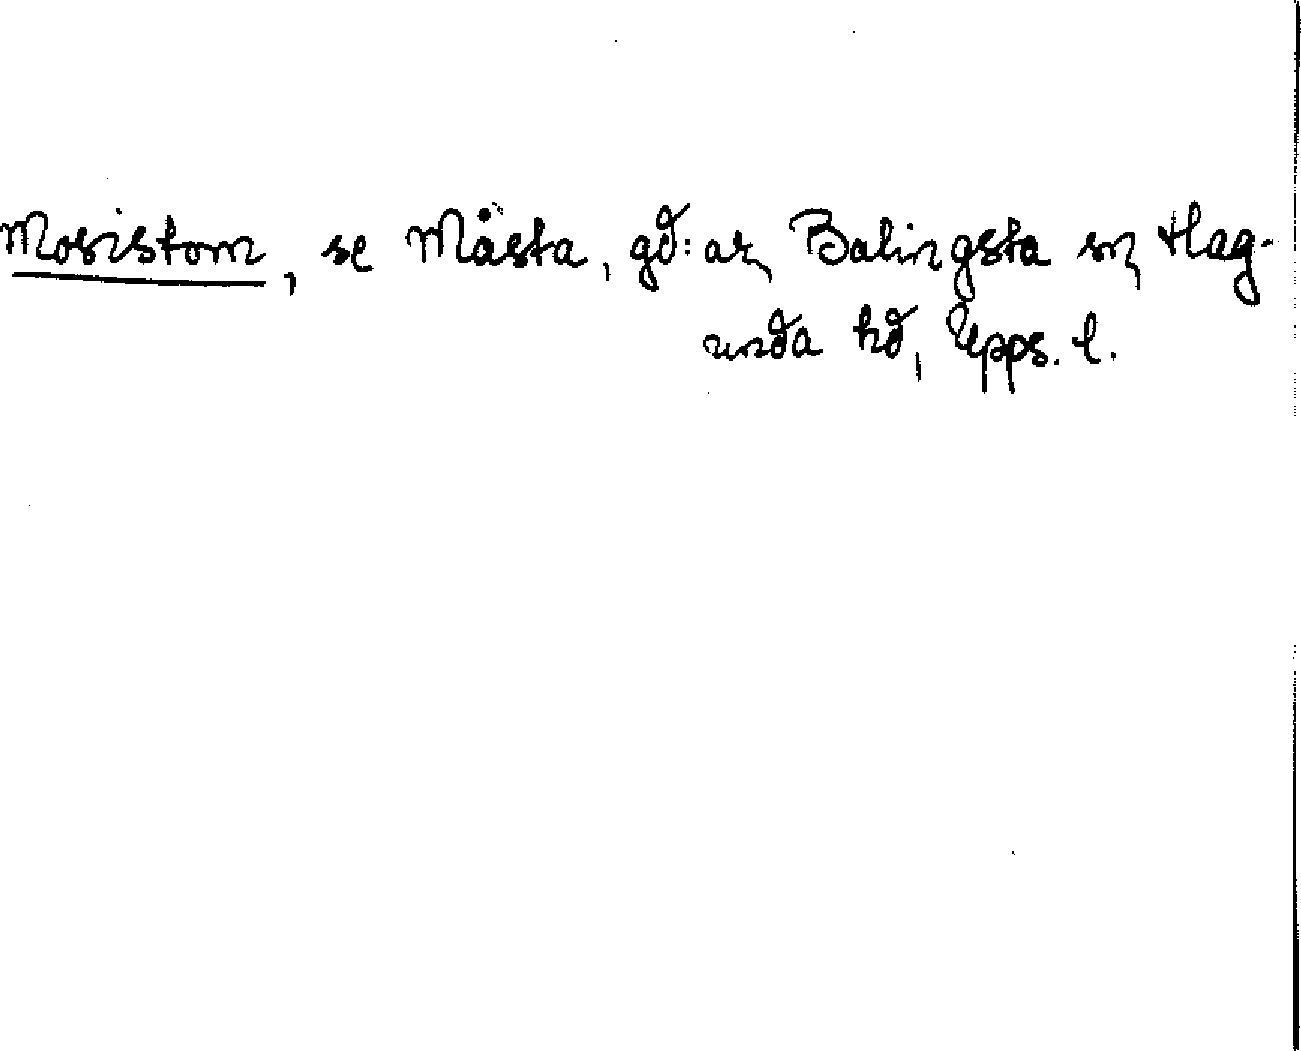 Mosistom, se Måsta, gd:ar, Balingsta sn, Hag-
unda hd, Upps. l.